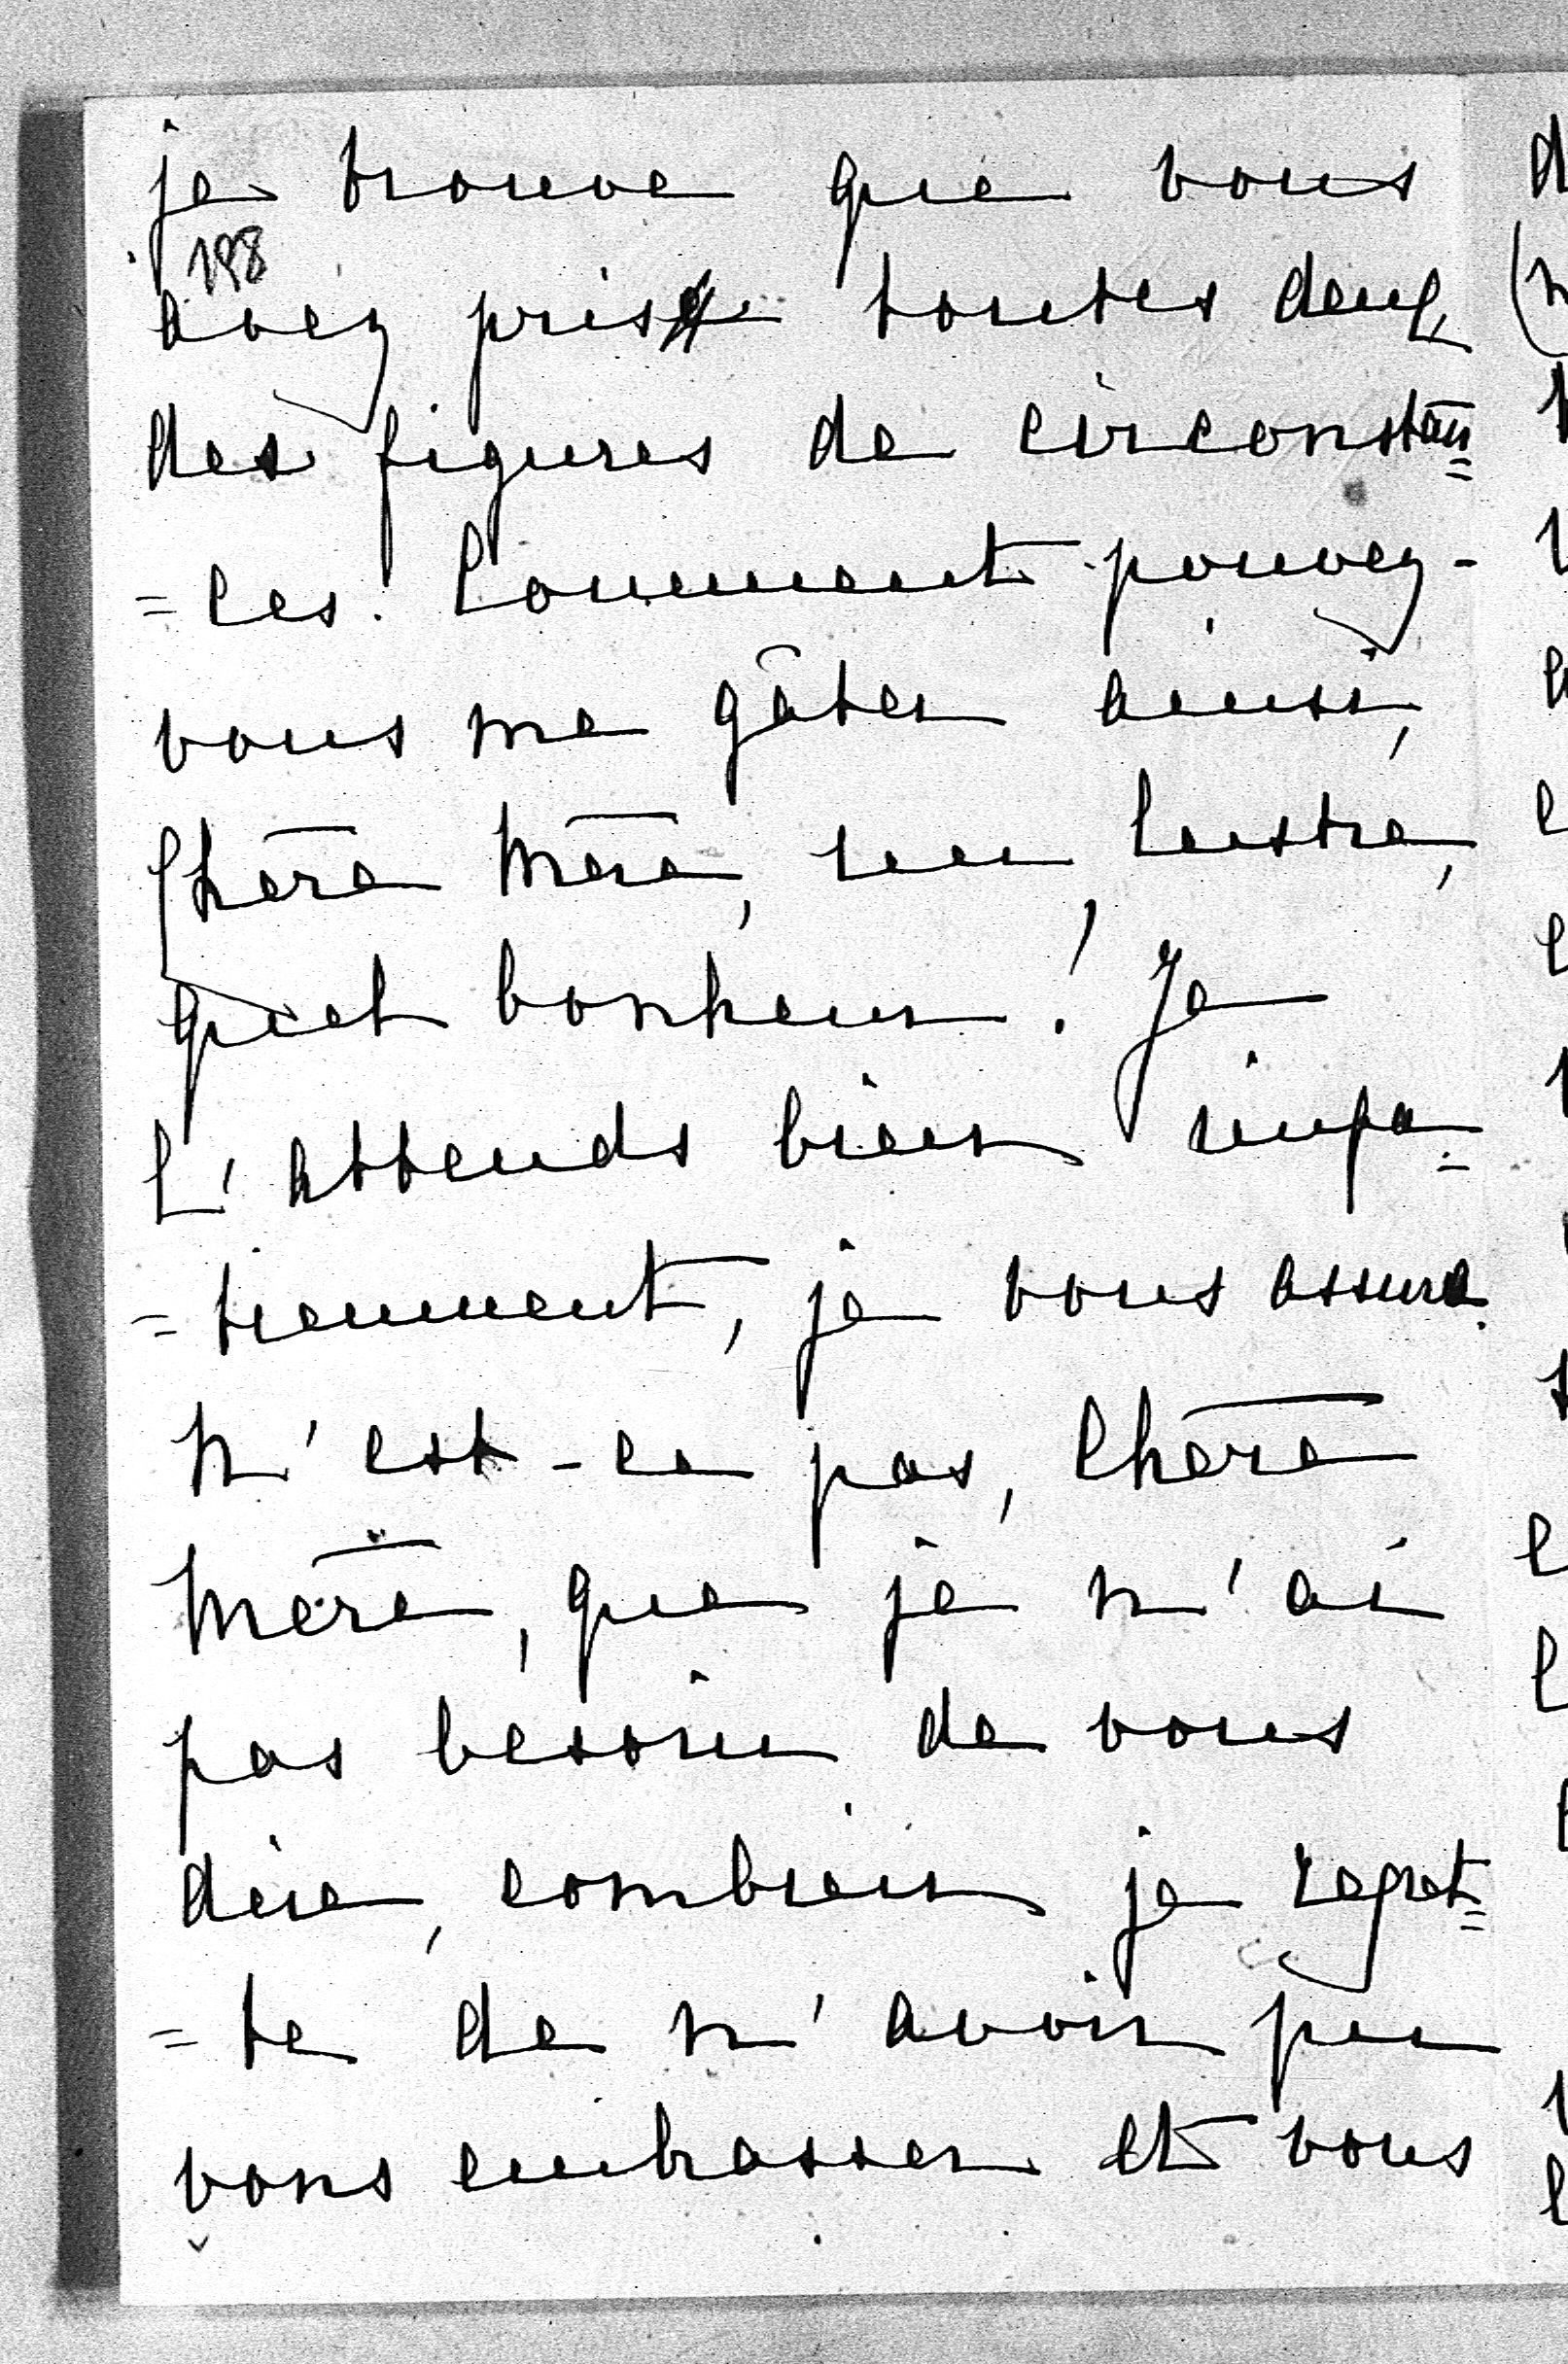 je trouve que vous
198
avez pris toutes deux
des figures de circonstan=
=ces. Comment pouvez-
vous me gâter ainsi,
Chère Mère, un lustre,
quel bonheur! Je
l'attends bien impa=
=tiemment, je vous assure.
N'est-ce pas, Chère
Mère, que je n'ai
pas besoin de vous
dire, combien je regret=
=te de n'avoir pu
vous embrasser et vous